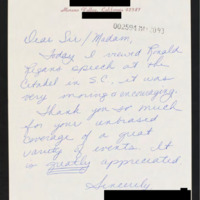 Moreno Valley, California 92387
Dear Sir/Madam,
Today I viewed Ronald
Regans' speech at the
Citadel in S.C., it was
very moving & encouraging.
Thank you so much
for your unbiased
coverage of a great
variety of events. It
is greatly appreciated.
Sincerely